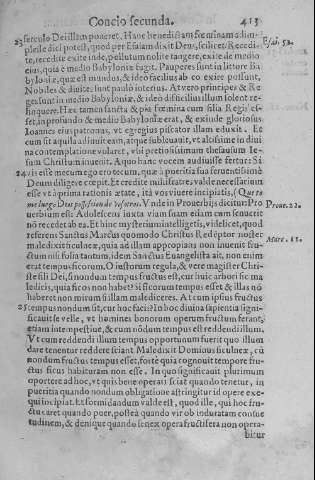 Concio secunda. 413
23 seculo Deillum poneret. Hanc benedictam
plesse dici potest, quod per Esaiam dixit Deus, scilicet Recedi- Esai. 52.
te, recedite exite inde, pollutum nolite tangere, exite de medio
eius, quia è medio Babyloniæ fugit. Pauperes sunt in littore Ba
byloniæ, quæ est mundos, & ideo facilius ab eo exire possunt,
Nobiles & diuites sunt paulò interius. At vero principes & Re
ges sunt in medio Babyloniæ, & ideò difficiliùs illum solent re-
linquere. Hæc tamen sancta & pia fœmina cum filia Regis es
set, in profundo & medio Babyloniæ erat, & exinde gloriosus
Ioannes eius patronus, vt egregius piscator illam eduxit. Et
cum sit aquila adinuit eam, atque subleuauit, vt altissimè in diui
na contemplatione volaret, vbi pretiosissimum thesaurum Ie-
sum Christum inuenit. Aquo hanc vocem audiuisse fertur: Si
24 vis esse mecum ego ero tecum, quæ à pueritia sua feruentissimè
Deum diligere cœpit. Et credite mihi fratres, valde necessarium
esse vt à prima rationis ætate, ità vos viuere incipiatis, (Quare
me longo Deus possessione de vestiros. Vnde in Prouerbijs dicitur: Pro Prouer. 22.
uerbium est: Adolescens iuxta viam suam etiam cum senuerit
nò recedet ab ea. Et hinc mysterium intelligetis, videlicet, quod
referens Sanctus Marcus quomodo Christus Redéptor noster
maledixit ficulneæ, quia ad illam appropians non inuenit fru- Marc. 11.
ctum nisi folia tantum, idem Sanctus Euangelista ait, non enim
erat tempus ficorum. O instorum regula, & vere magister Chri-
ste fili Dei, si nondum tempus fructus est, cur huic arbori sic ma
ledicis, quia ficos non habet? si ficorum tempus esset & illas nõ
haberet non mirum si illam malediceres. At cum ipsius fructus
25 tempus nondum sit, cur hoc facis? In hoc diuina sapientia signi-
ficauit se velle, vt homines bonorum operum fructum ferant,
etiam intempestiuè, & cum nõdum tempus est reddendi illum.
Vt cum reddendi illum tempus opportunum fuerit quo illum
dare tenentur reddere sciant. Maledixit Dominus ficulneæ, cû
nondum fructus tempus esset, fortè quia cognouit tempore fru-
ctus ficus habituram non esse. In quo significauit plurimum
oportere ad hoc, vt quis bene operari sciat quando tenetur, in
pueritia quando nondum obligatione astringitur id opere exe-
qui incipiat. Et formidandum valde est, quod ille, qui hoc fru-
ctu caret quando puer, posteà quando vir ob induratam consue
tudinem, & denique quando senex opera fructifera non opera-
bitur